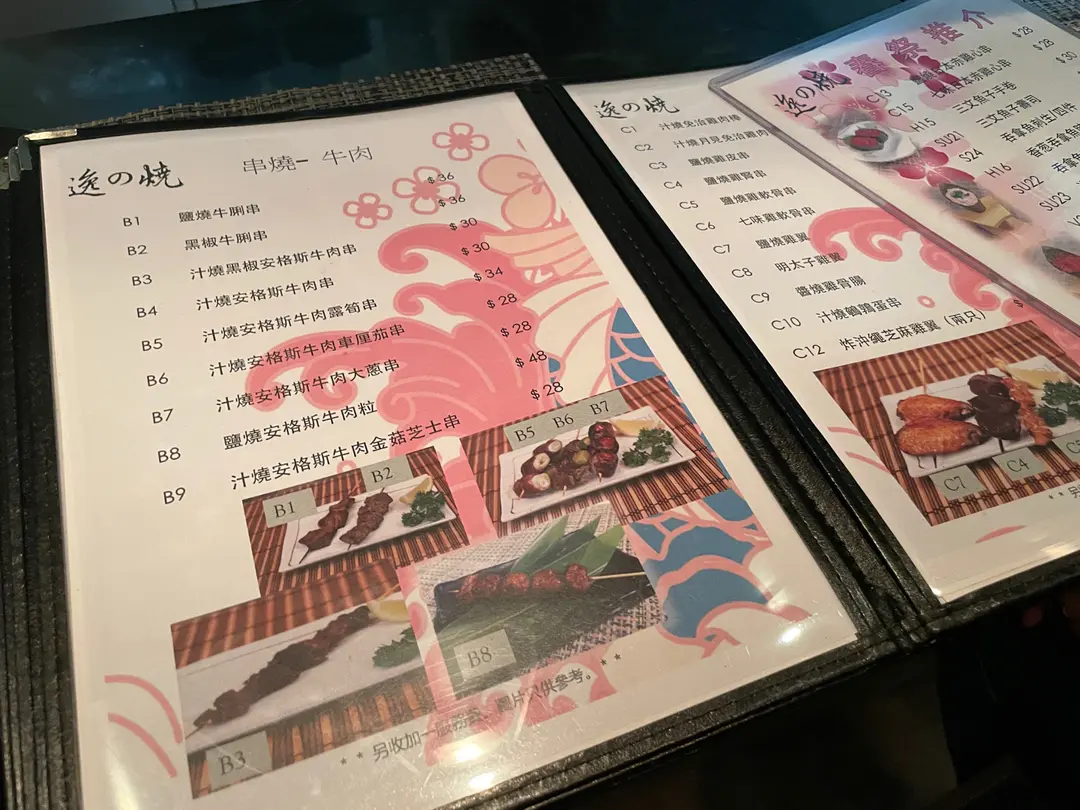 逸の燒
串燒- 牛肉
B1 鹽燒牛脷串 $36
B2 黑椒牛脷串 $36
B3 汁燒黑椒安格斯牛肉串 $30
B4 汁燒安格斯牛肉串 $30
B5 汁燒安格斯牛肉露筍串 $34
B6 汁燒安格斯牛肉車厘茄串 $28
B7 汁燒安格斯牛肉大蔥串 $28
B8 鹽燒安格斯牛肉粒 $48
B9 汁燒安格斯牛肉金菇芝士串 $28
B1 B2
B5 B6 B7
B3
B8
**另收加一服務費、圖片只供參考。**
逸の燒
C1 汁燒免治雞肉棒
C2 汁燒月見免治雞肉
C3 鹽燒雞皮串
C4 鹽燒雞腎串
C5 鹽燒雞軟骨串
C6 七味雞軟骨串
C7 鹽燒雞翼
C8 明太子雞翼
C9 醬燒雞骨腸
C10 汁燒鵪鶉蛋串
C12 炸沖繩芝麻雞翼 (兩只) $
C7 C4
**另
逸の燒
祭推介
C13 日本赤雞心串 $28
C15 赤雞心串 $28
H15 三文魚子手卷 $30
SU21 三文魚子壽司
S24 吞拿魚刺生/四件
H16 香蔥吞拿魚
SU22 吞拿
SU23